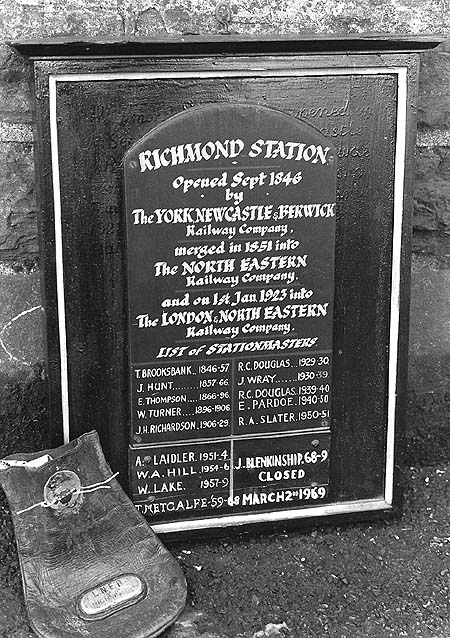 RICHMOND STATION
Opened Sept 1846
by
The YORK, NEWCASTLE & BERWICK
Railway Company,
merged in 1851 into
The NORTH EASTERN
Railway Company,
and on 1st Jan 1923 into
The LONDON & NORTH EASTERN
Railway Company.
LIST of STATIONMASTERS.
T. BROOKSBANK. 1846-57
J. HUNT........1857-66.
E. THOMPSON....1866-96.
W. TURNER....1896-1906
J.H. RICHARDSON. 1906-29.
R.C. DOUGLAS...1929-30.
J. WRAY.......1930-39.
R.C. DOUGLAS. 1939-40
E. PARDOE. 1940-50
R.A. SLATER. 1950-51
A. LAIDLER. 1951-4
W.A. HILL. 1954-6
W. LAKE. 1957-9
T. METCALFE. 59-68
J. BLENKINSHIP. 68-9
CLOSED
MARCH 2ND 1969
L.N.E.R.